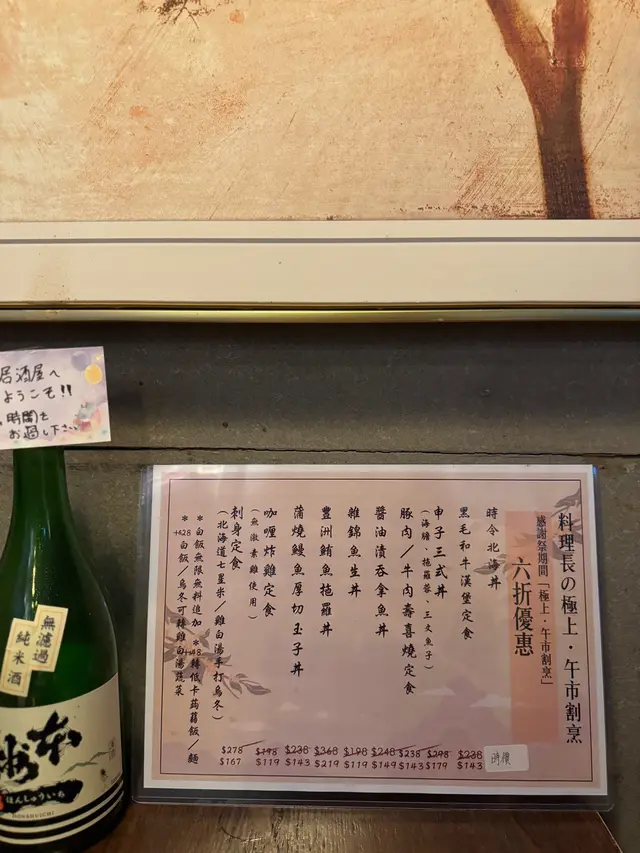 居酒屋へ
ようこそ!!
時間を
お過し下さい
無濾過
純米酒
本洲一
ほんしゅういち
HONSHUICHI
料理長の極上・午市割烹
感謝祭期間「極上・午市割烹」
六折優惠
時令北海丼 時價
黑毛和牛漢堡定食 $238 $143
申子三式丼 $298 $179
(海膽、拖羅蓉、三文魚子)
豚肉/牛肉壽喜燒定食 $238 $143
醬油漬吞拿魚丼 $248 $149
雜錦魚生丼 $198 $119
豐洲鮪魚拖羅丼 $368 $219
蒲燒鰻魚厚切玉子丼 $238 $143
咖喱炸雞定食 $198 $119
(無激素雞使用)
刺身定食 $278 $167
(北海道七星米/雞白湯手打烏冬)
*白飯無限無料追加 *+$8轉低卡蒟蒻飯/麵
*+$28白飯/烏冬可轉雞白湯蔬菜